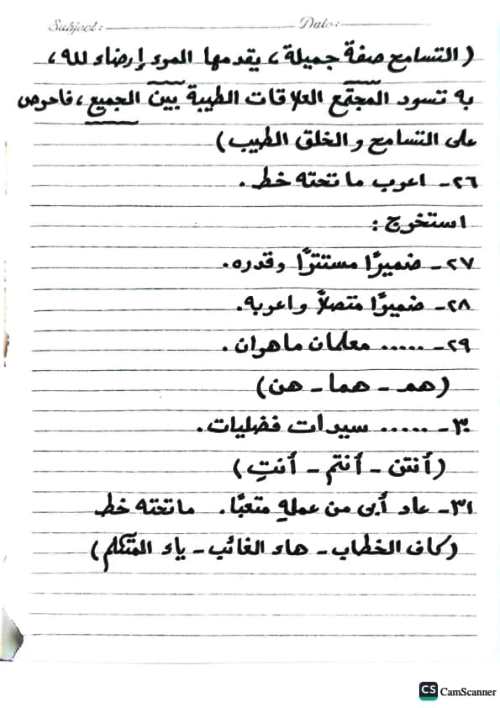 Subject: Date:
(التسامح صفة جميلة، يقدمها المرء إرضاء لله،
به تسود المجتمع العلاقات الطيبة بين الجميع، فاحرص
على التسامح والخلق الطيب)
٢٦- اعرب ما تحته خط.
استخرج:
٢٧- ضميرًا مستترًا وقدره.
٢٨- ضميرًا متصلاً واعربه.
٢٩- ..... معلمان ماهران.
(هم - هما - هن)
٣٠- ..... سيدات فضليات.
(أنتن - أنتم - أنتِ)
٣١- عاد أبى من عملهِ متعبًا. ما تحته خط
(كاف الخطاب - هاء الغائب - ياء المتكلم)
CS CamScanner